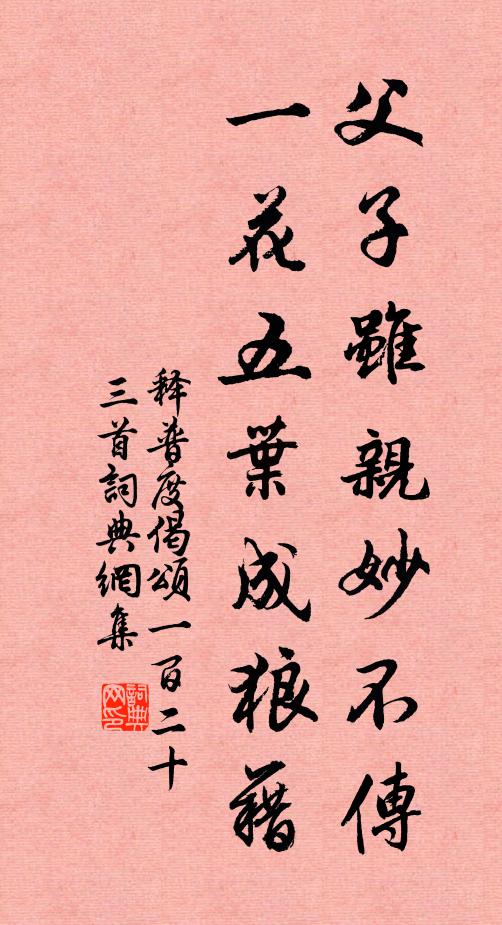 父子雖親妙不傳
一花五葉成狼藉
释普度偈頌一百二十
三首詞典網集
詞典网印